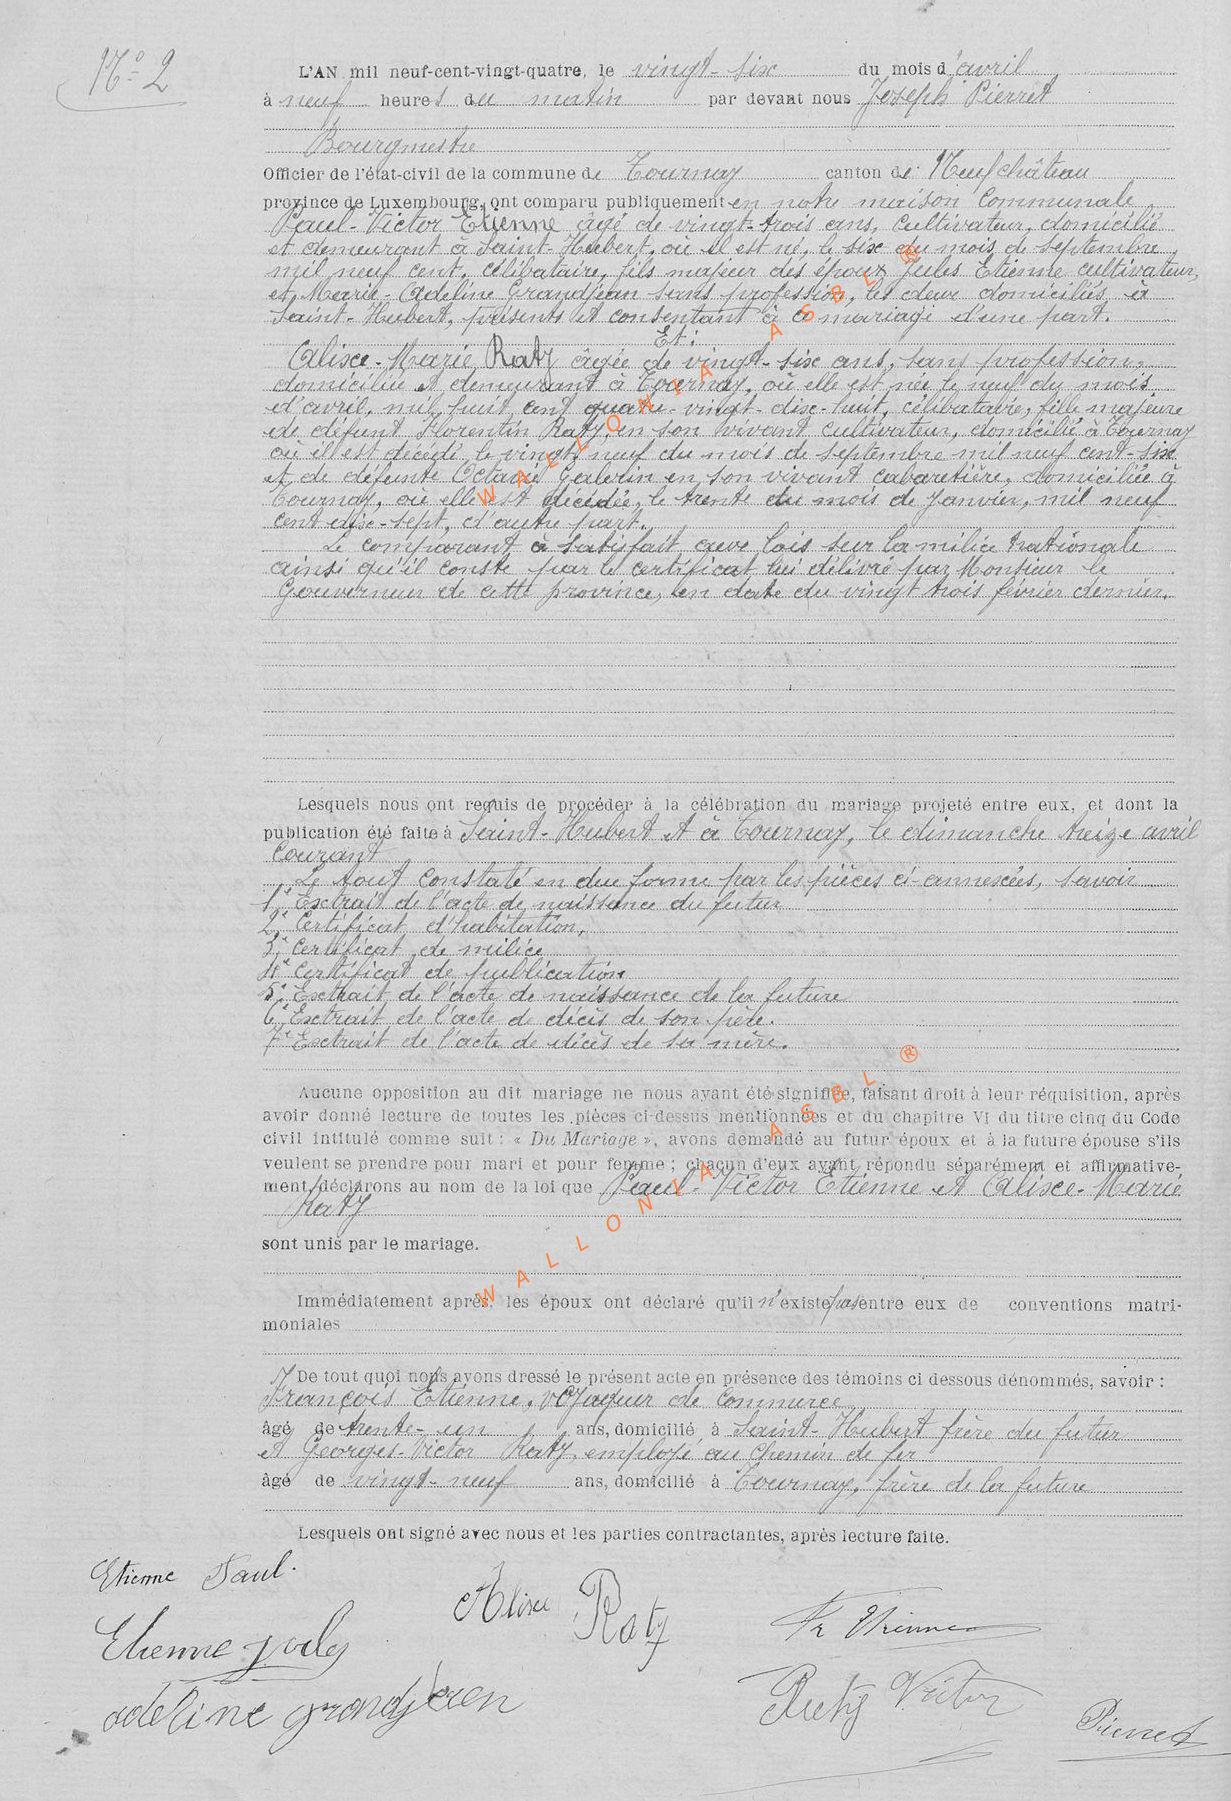 N° 2
L'AN mil neuf-cent-vingt-quatre, le vingt-six du mois d'avril
à neuf heures du matin par devant nous Joseph Pierret
Bourgmestre
Officier de l'état-civil de la commune de Tournay canton de Neufchâteau
province de Luxembourg, ont comparu publiquement en notre maison Communale
Paul-Victor Etienne âgé de vingt-trois ans, cultivateur, domicilié
et demeurant à Saint-Hubert, où il est né, le six du mois de septembre
mil neuf cent, célibataire, fils majeur des époux Jules Etienne cultivateur,
et Marie-Adeline Grandjean sans profession, les deux domiciliés à
Saint-Hubert, présents et consentant à ce mariage d'une part.
Et:
Alixe-Marie Raty âgée de vingt-six ans, sans profession,
domiciliée et demeurant à Tournay, où elle est née le neuf du mois
d'avril, mil huit cent quatre-vingt-dix-huit, célibataire, fille majeure
de défunt Florentin Raty, en son vivant cultivateur, domicilié à Tournay
où il est décédé le vingt neuf du mois de septembre mil neuf cent-six
et de défunte Octavie Galerin en son vivant cabaretière, domiciliée à
Tournay, où elle est décédée, le trente du mois de Janvier, mil neuf
cent dix-sept, d'autre part.
Le comparant a satisfait aux lois sur la milice nationale
ainsi qu'il conste par le certificat lui délivré par Monsieur le
Gouverneur de cette province, en date du vingt trois février dernier.
Lesquels nous ont requis de procéder à la célébration du mariage projeté entre eux, et dont la
publication été faite à Saint-Hubert et à Tournay, le dimanche treize avril
courant
Le tout constaté en due forme par les pièces ci-annexées, savoir
1° Extrait de l'acte de naissance du futur
2° Certificat d'habitation,
3° Certificat de milice
4° Certificat de publication
5° Extrait de l'acte de naissance de la future
6° Extrait de l'acte de décès de son père.
7° Extrait de l'acte de décès de sa mère.
Aucune opposition au dit mariage ne nous ayant été signifiée, faisant droit à leur réquisition, après
avoir donné lecture de toutes les pièces ci-dessus mentionnées et du chapitre VI du titre cinq du Code
civil intitulé comme suit : « Du Mariage », avons demandé au futur époux et à la future épouse s'ils
veulent se prendre pour mari et pour femme ; chacun d'eux ayant répondu séparément et affirmative-
ment, déclarons au nom de la loi que Paul-Victor Etienne et Alixe-Marie
Raty
sont unis par le mariage.
Immédiatement après, les époux ont déclaré qu'il n'existe pas entre eux de conventions matri-
moniales
De tout quoi nous avons dressé le présent acte en présence des témoins ci dessous dénommés, savoir :
François Etienne, voyageur de commerce
âgé de trente-un ans, domicilié à Saint-Hubert frère du futur
et Georges-Victor Raty, employé au chemin de fer
âgé de vingt-neuf ans, domicilié à Tournay, frère de la future
Lesquels ont signé avec nous et les parties contractantes, après lecture faite.
Etienne Paul.
Alixe Raty
Fr Etienne
Etienne Jules
Raty Victor
adeline grandjean
Pierret
WALLONIA ASBL ®
WALLONIA ASBL ®